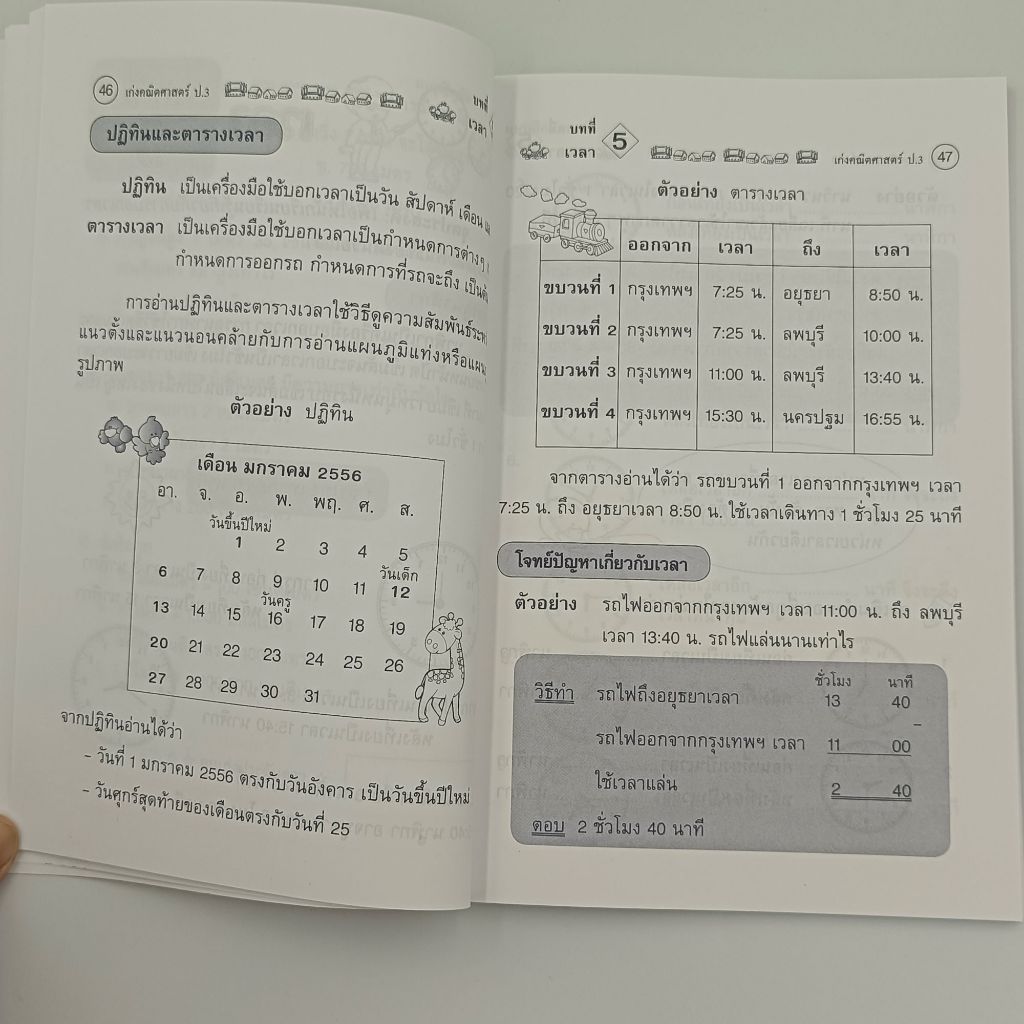 46 เก่งคณิตศาสตร์ ป.3
บทที่
เวลา
ปฏิทินและตารางเวลา
ปฏิทิน เป็นเครื่องมือใช้บอกเวลาเป็นวัน สัปดาห์ เดือน
ตารางเวลา เป็นเครื่องมือใช้บอกเวลาเป็นกำหนดการต่างๆ
กำหนดการออกรถ กำหนดการที่รถจะถึง
การอ่านปฏิทินและตารางเวลาใช้วิธีดูความสัมพันธ์
แนวตั้งและแนวนอนคล้ายกับการอ่านแผนภูมิแท่งหรือ
รูปภาพ
ตัวอย่าง ปฏิทิน
เดือน มกราคม 2556
อา. จ. อ. พ. พฤ. ศ. ส.
วันขึ้นปีใหม่
1 2 3 4 5
วันเด็ก
6 7 8 9 10 11 12
วันครู
13 14 15 16 17 18 19
20 21 22 23 24 25 26
27 28 29 30 31
จากปฏิทินอ่านได้ว่า
- วันที่ 1 มกราคม 2556 ตรงกับวันอังคาร เป็นวันขึ้นปีใหม่
- วันศุกร์สุดท้ายของเดือนตรงกับวันที่ 25
บทที่ 5
เวลา
เก่งคณิตศาสตร์ ป.3 47
ตัวอย่าง ตารางเวลา
ออกจาก เวลา ถึง เวลา
ขบวนที่ 1 กรุงเทพฯ 7:25 น. อยุธยา 8:50 น.
ขบวนที่ 2 กรุงเทพฯ 7:25 น. ลพบุรี 10:00 น.
ขบวนที่ 3 กรุงเทพฯ 11:00 น. ลพบุรี 13:40 น.
ขบวนที่ 4 กรุงเทพฯ 15:30 น. นครปฐม 16:55 น.
จากตารางอ่านได้ว่า รถขบวนที่ 1 ออกจากกรุงเทพฯ เวลา
7:25 น. ถึง อยุธยาเวลา 8:50 น. ใช้เวลาเดินทาง 1 ชั่วโมง 25 นาที
โจทย์ปัญหาเกี่ยวกับเวลา
ตัวอย่าง รถไฟออกจากกรุงเทพฯ เวลา 11:00 น. ถึง ลพบุรี
เวลา 13:40 น. รถไฟแล่นนานเท่าไร
ชั่วโมง นาที
วิธีทำ รถไฟถึงอยุธยาเวลา 13 40
-
รถไฟออกจากกรุงเทพฯ เวลา 11 00
ใช้เวลาแล่น 2 40
ตอบ 2 ชั่วโมง 40 นาที